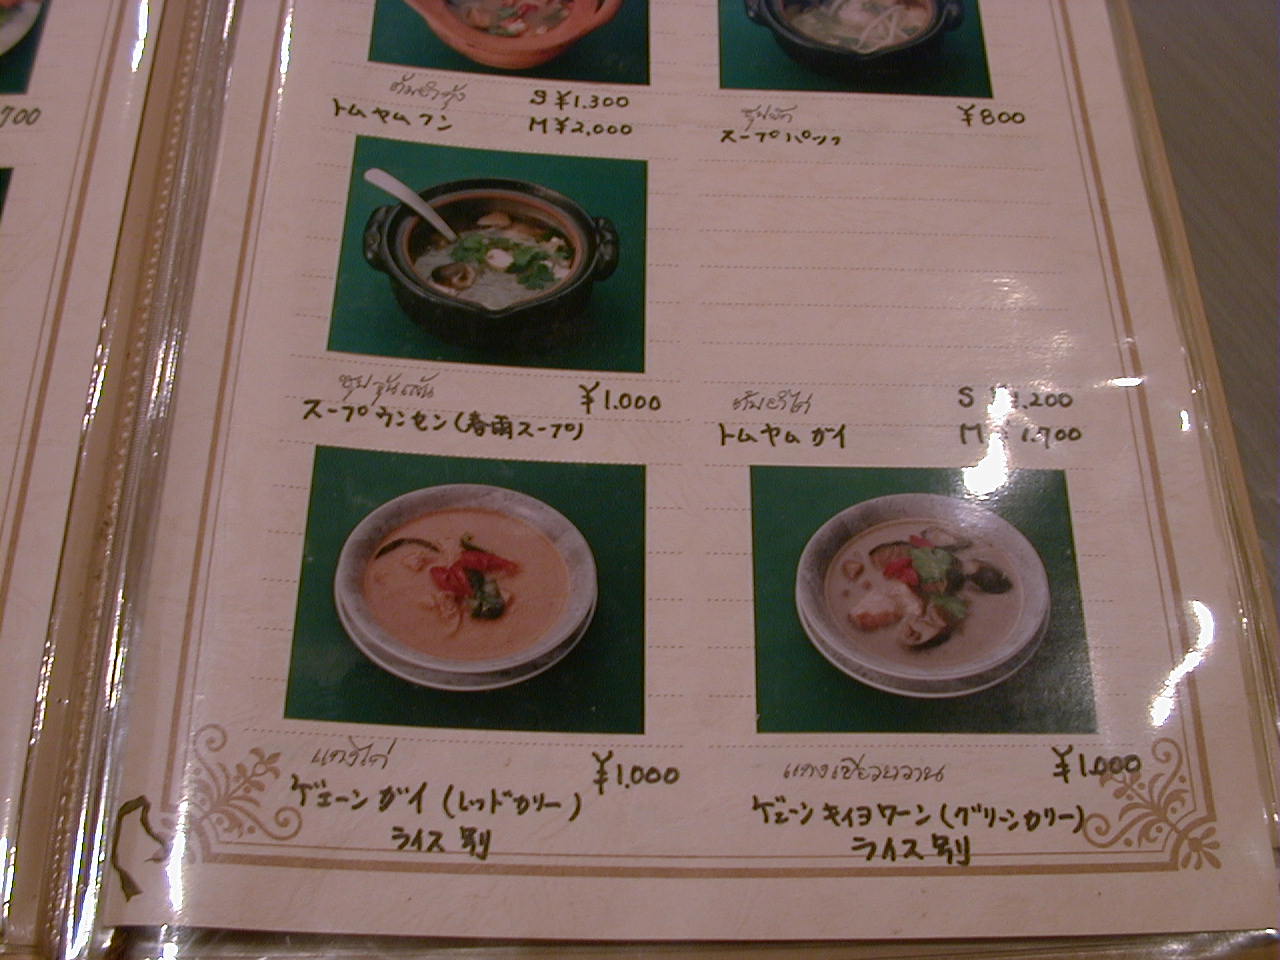 700
ต้มยำกุ้ง S ¥1.300
トムヤムクン M ¥2,000
ซุปผัก ¥800
スープパック
ซุปวุ้นเส้น ¥1.000
スープウンセン(春雨スープ)
ต้มยำไก่ S ¥1.200
トムヤムガイ M ¥1.700
แกงไก่ ¥1.000
ゲェーンガイ(レッドカリー)
ライス別
แกงเขียวหวาน ¥1.000
ゲェーンキィヨワーン(グリーンカリー)
ライス別